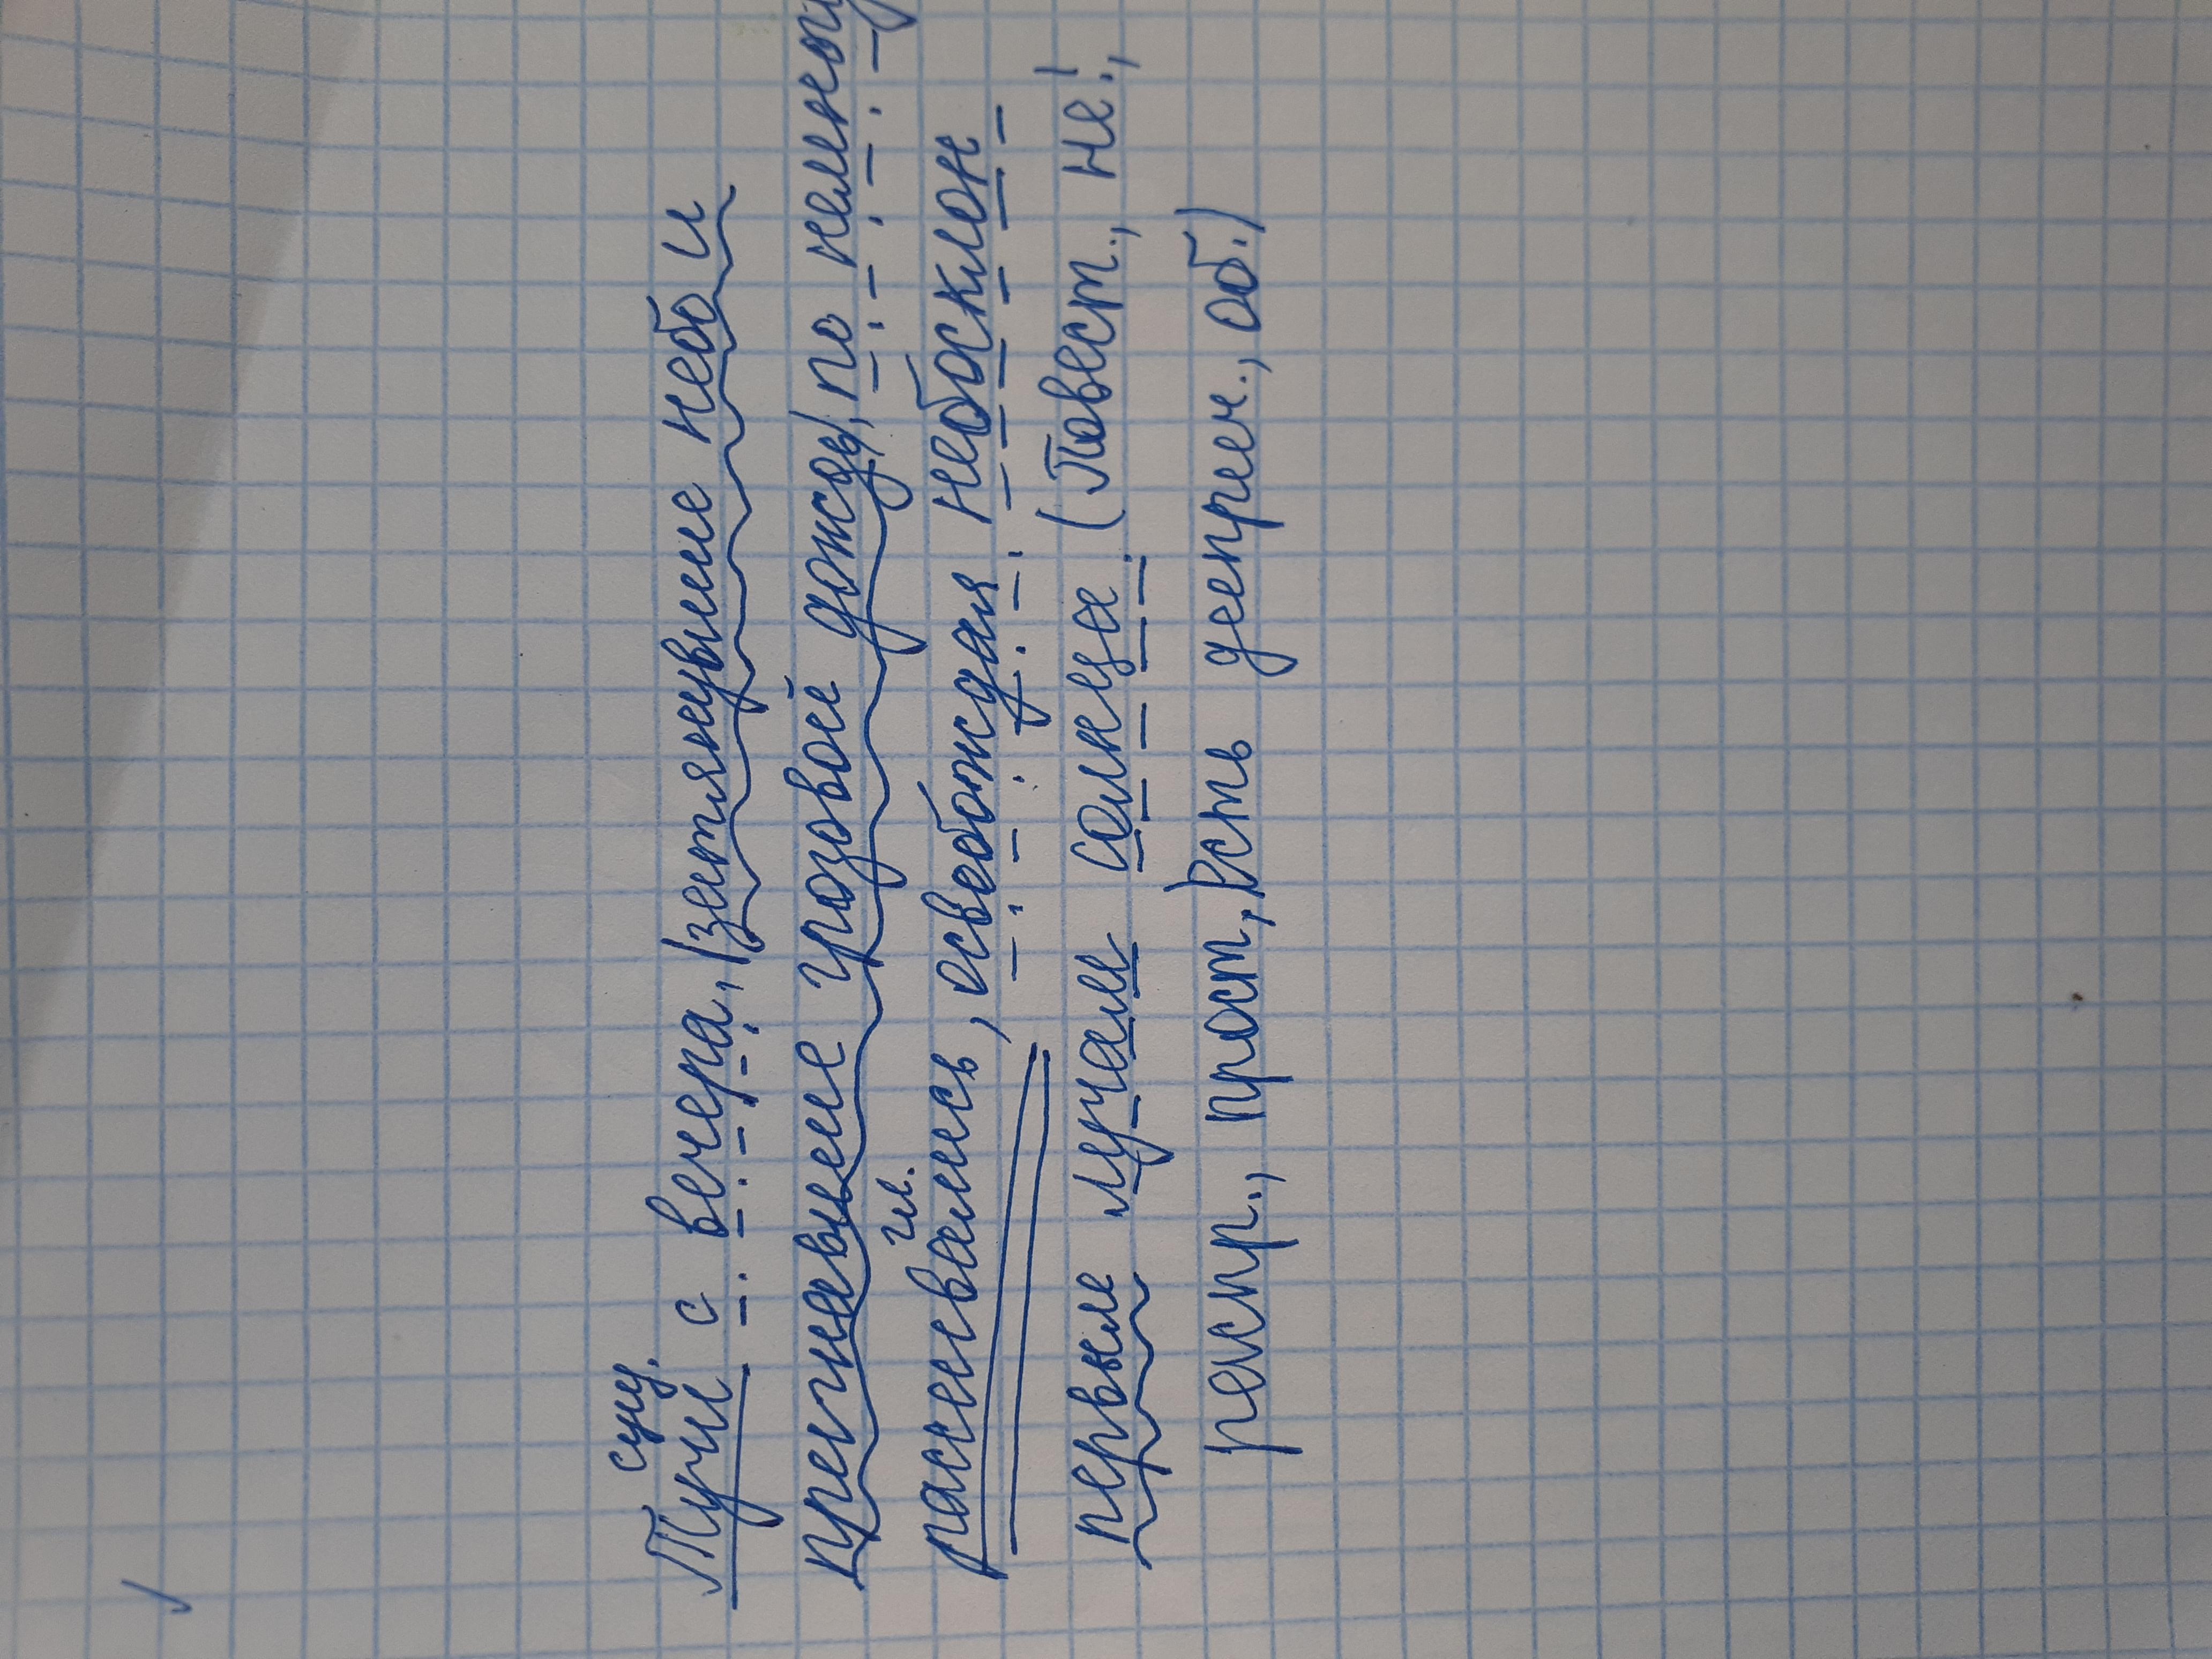 сущ.
Тучи с вечера, |затянувшие небо и
пригнавшие грозовой дождь|, по немногу
гл.
рассеивались, освебождая небосклон
первым лучам солнца. (Повест., не!,
распр., прост, есть дееприч., об.)